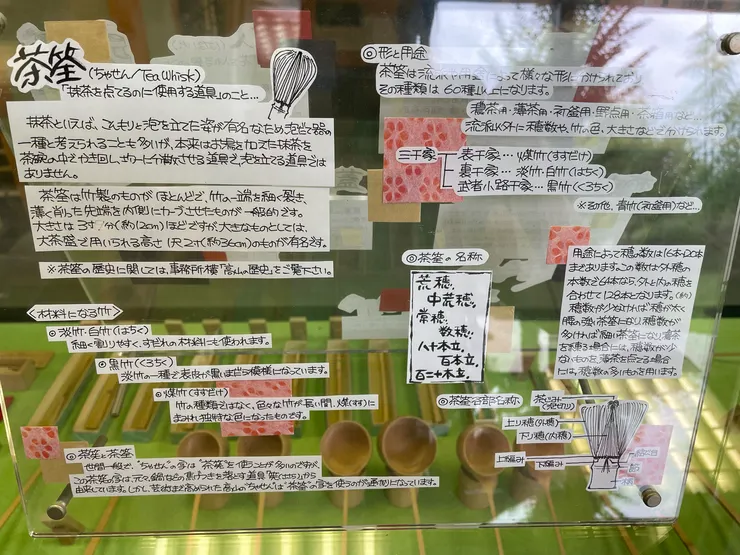 茶筌
(ちゃせん/Tea Whisk)
「抹茶を点てるのに使用する道具」のこと…
抹茶といえば、こんもりと泡を立てた姿が有名なため泡立て器の
一種と考えられることも多いが、本来はお湯を加えた抹茶を
茶碗の中でかき回し、均一に分散させる道具で泡を立てる道具では
ありません。
茶筌は竹製のものがほとんどで、竹の一端を細く裂き、
薄く削った先端を内側にカーブさせたものが一般的です。
大きさは3寸 分(約12cm)ほどですが、大きなものとしては、
大茶盛で用いられる高さ1尺2寸(約36cm)のものが有名です。
※茶筌の歴史に関しては、事務所横「高山の歴史」をご覧下さい。
〈材料になる竹〉
◎淡竹・白竹(はちく)
細く割りやすく、すだれの材料にも使われます。
◎黒竹(くろちく)
淡竹の一種で表皮が黒いまだら模様になっています。
◎煤竹(すすだけ)
竹の種類ではなく、色々な竹が長い間、煤(すす)に
まみれ独特な色になったものです。
◎茶筅と茶筌
世間一般で、"ちゃせん"の字は"茶筅"を使うことが多いのですが、
この茶筅の字は元々、鍋などの焦げつきを落とす道具
由来しています。しかし、芸術まで高められた高山のちゃせんは"茶筌"の字を使うのが通例になっています。
◎形と用途
茶筌は流派や用途によって様々な形に分けられており
その種類は60種以上になります。
濃茶用・薄茶用・祈盛用・野点用・茶箱用など…
流派以外に穂数や、竹の色、大きさなどで分けられます。
三千家
表千家…煤竹(すすだけ)
裏千家…淡竹・白竹(はちく)
武者小路千家…黒竹(くろちく)
※その他、青竹( 用)など…
◎茶筌の名称
荒穂、
中荒穂、
常穂、
数穂、
八十本立、
百本立、
百二十本立、
用途によって穂の数は16本~120本
まであります。この数は外穂の
本数で64本なら、外と内の穂を
合わせて128本となります。(約)
穂数が少なければ穂が太く
腰の強い茶筌になり、穂数が
多ければ細い茶筌になり、濃茶
を練る場合には、穂数が少
ないものを、薄茶を点てる場合
には、穂数の多いものを用います。
◎茶筌各部名称
上り穂(外穂)
下り穂(内穂)
上編み
下編み
節
柄